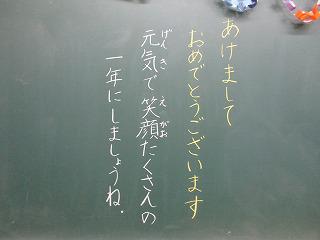 あけまして
おめでとうございます
元気で笑顔たくさんの
一年にしましょうね.
げんき
えがお